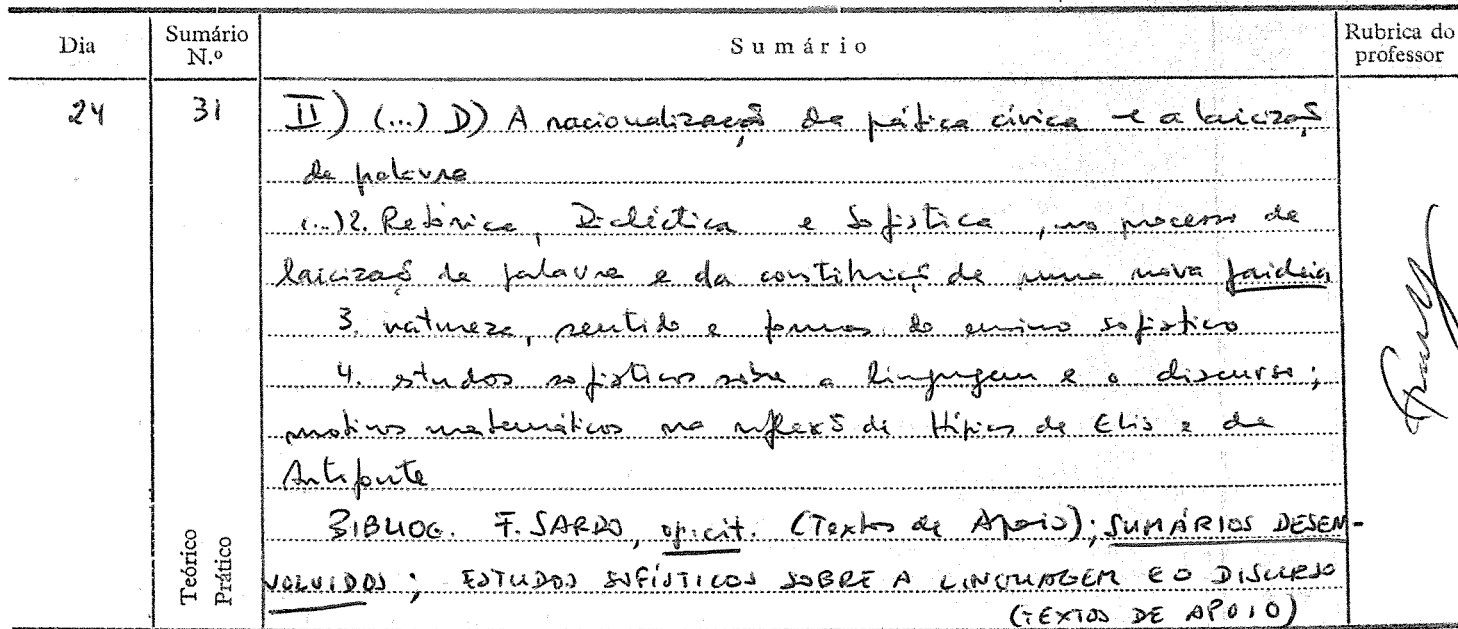 Dia
Sumário N.º
Sumário
Rubrica do professor
24
31
II) (...) D) A racionalização da prática cívica e a laicização
da palavra
(...) 2. Retórica, Dialéctica e Sofística, no processo de
laicização da palavra e da constituição de uma nova paideia
3. natureza, sentido e formas do ensino sofístico
4. estudos sofísticos sobre a linguagem e o discurso;
motivos matemáticos na reflexão de Hípias de Elis e de
Antifonte
BIBLIOG. F. SARDO, op. cit. (Textos de Apoio); SUMÁRIOS DESEN-
VOLVIDOS; ESTUDOS SOFÍSTICOS SOBRE A LINGUAGEM E O DISCURSO
(TEXTOS DE APOIO)
Teórico
Prático